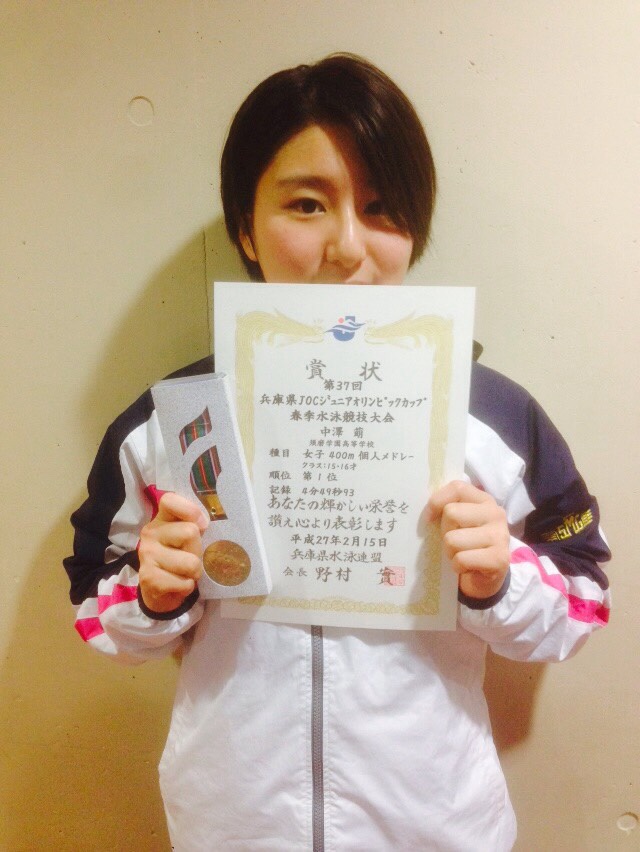 賞状
第37回
兵庫県JOCジュニアオリンピックカップ
春季水泳競技大会
中澤 萌
須磨学園高等学校
種目 女子 400m 個人メドレー
クラス:15・16才
順位 第1位
記録 4分49秒93
あなたの輝かしい栄誉を
讃え心より表彰します
平成27年2月15日
兵庫県水泳連盟
会長 野村